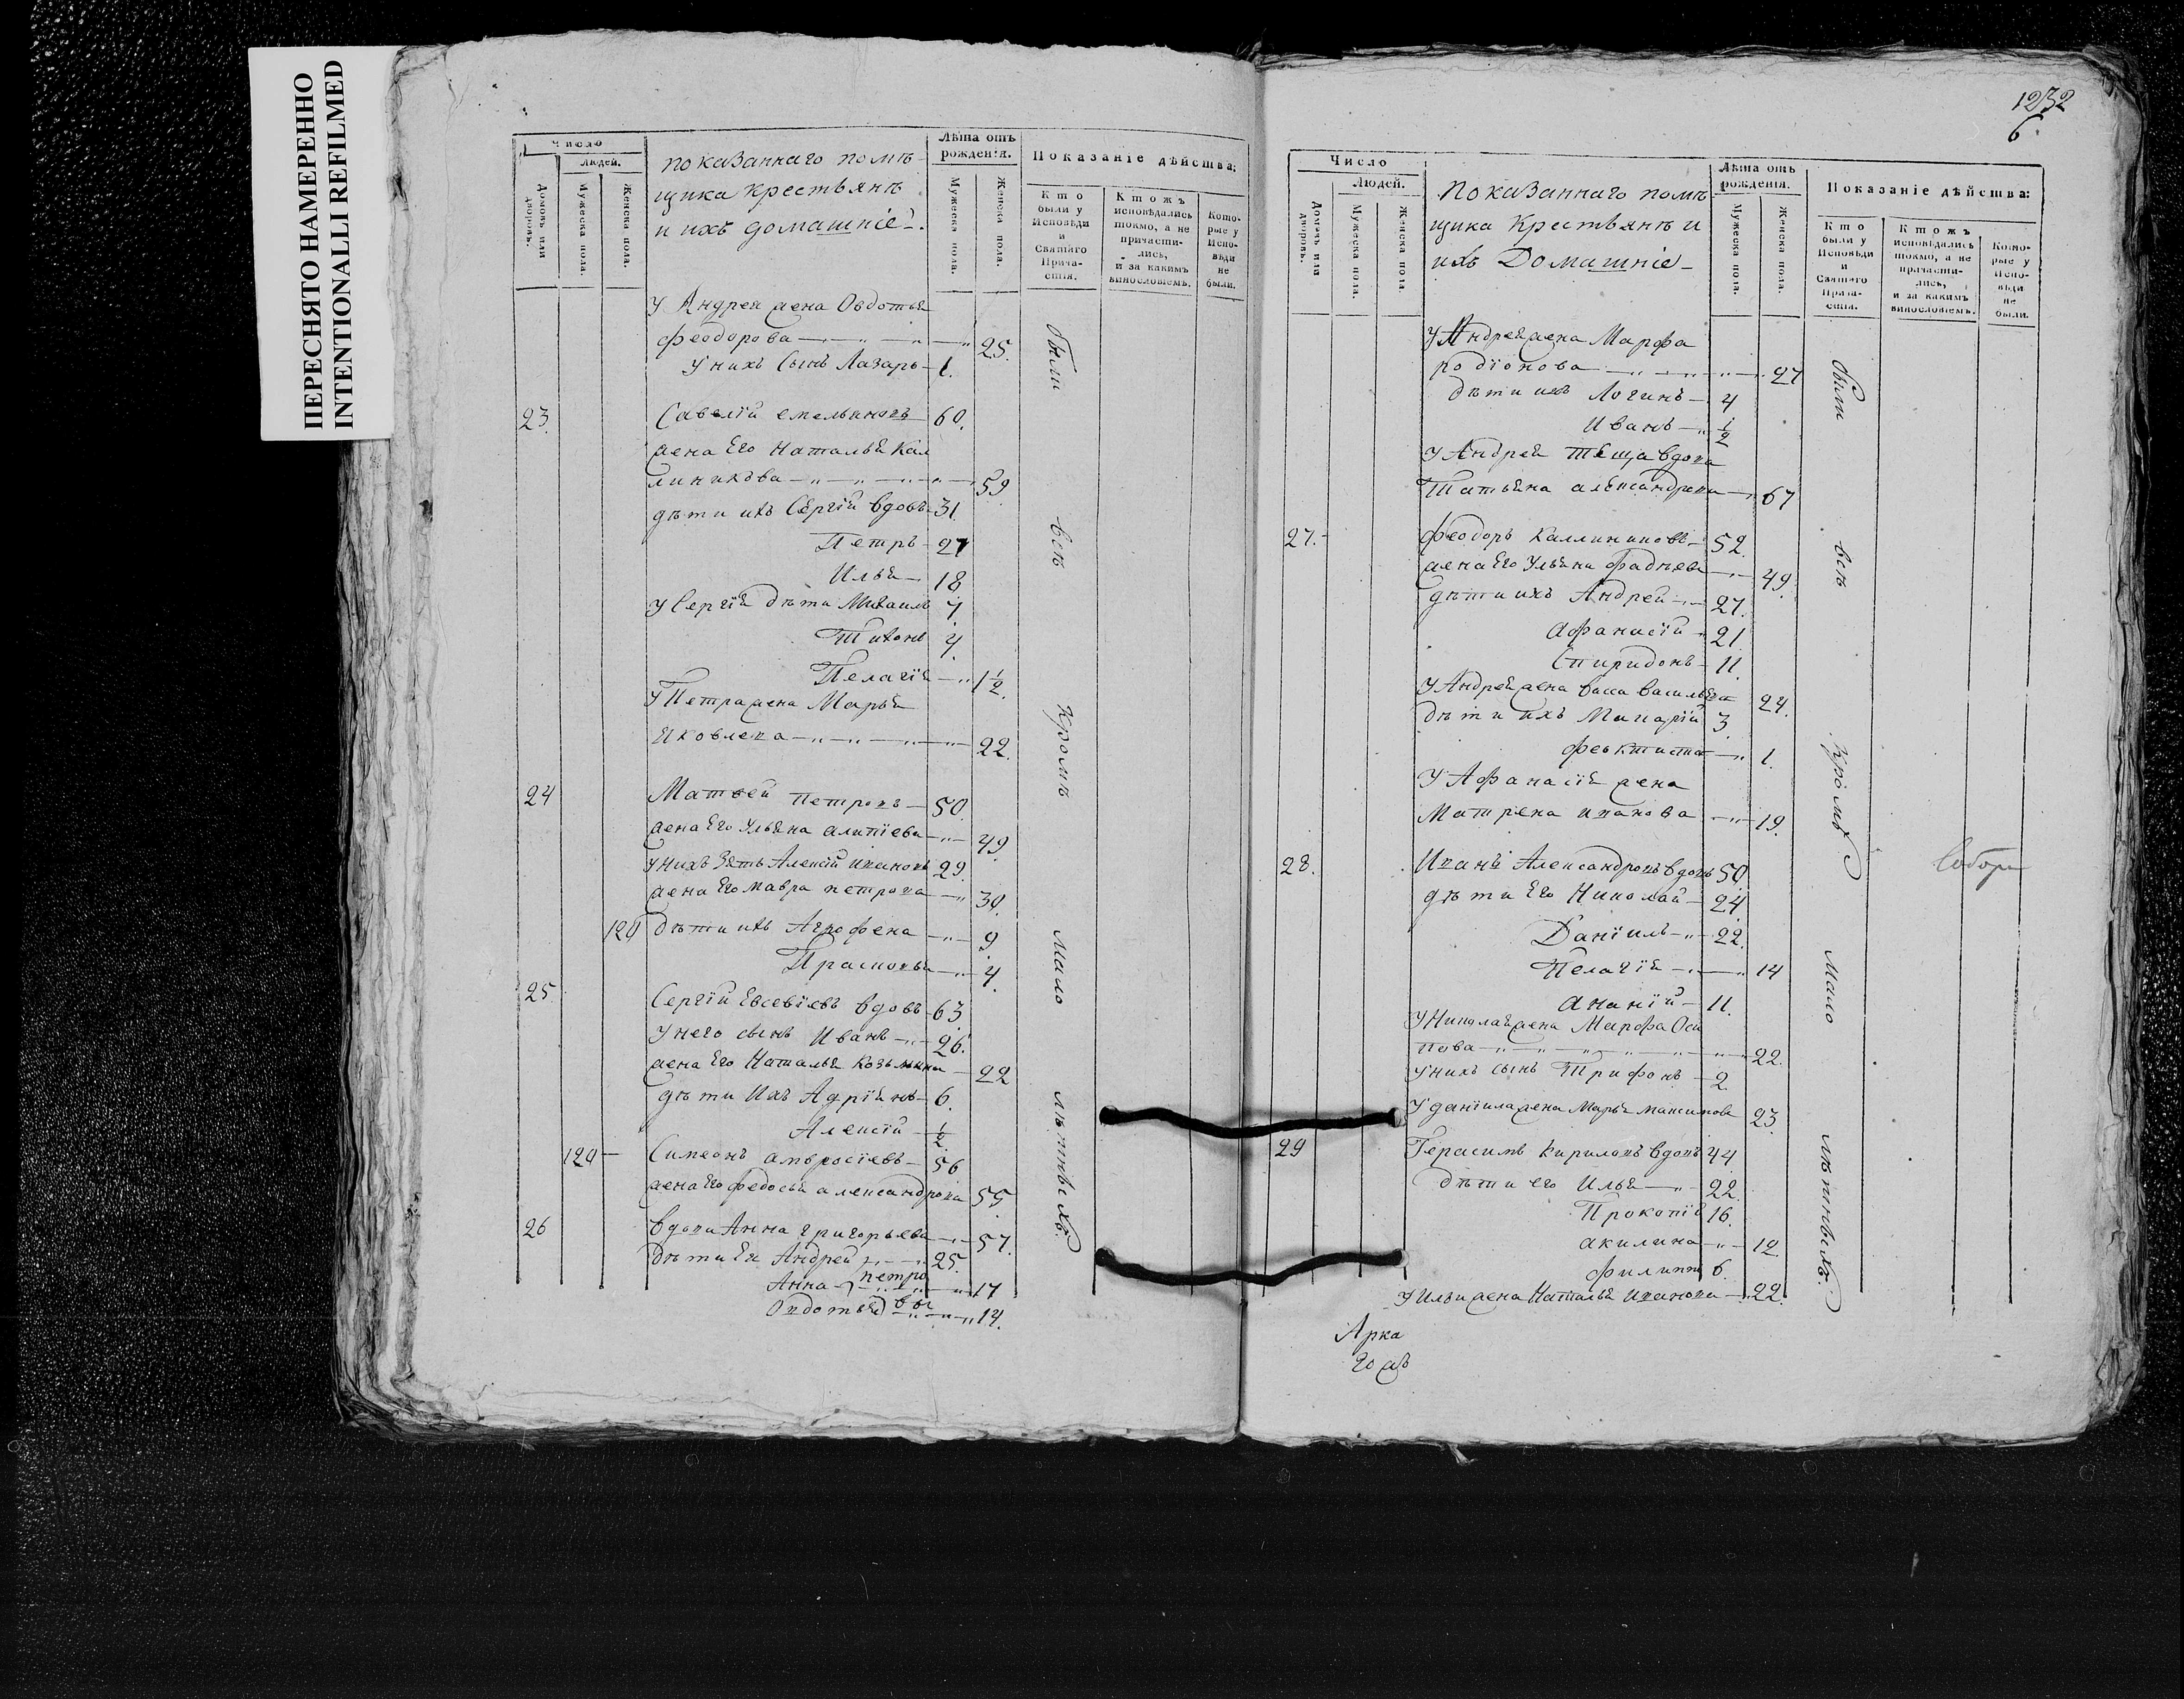 ПЕРЕСНЯТО НАМЕРЕННО
INTENTIONALLI REFILMED
Число
Людей.
Домовъ или дворовъ.
Мужеска пола.
Женска пола.
показаннаго помѣ-
щика крестьянѣ
и ихъ домашніе.
Лѣта отъ рожденія.
Мужеска пола.
Женска пола.
Показаніе дѣйства:
Кто были у Исповѣди и Святаго Причастія.
Ктожъ исповѣдались токмо, а не причастились, и за какимъ винословіемъ.
Которые у Исповѣди не были.
У Андрея жена Овдотья
Феодорова 25.
У нихъ сынъ Лазарь 1.
23. Савелій Емельяновъ 60.
жена Его Наталья Кал
линикова 59
дѣти ихъ Сергій вдовъ 31.
Петръ 27
Илья 18
У Сергія дѣти Михаилъ 7
Тихонъ 4
Пелагія 1 1/2.
У Петра жена Марья
Яковлева 22.
24 Матвей Петровъ 50.
жена Его Ульяна Алипіева 49
У нихъ зять Алексій Ивановъ 29.
жена Его Мавра Петрова 30.
120 дѣти ихъ Агрофена 9
Прасковья 4.
25. Сергій Евсевіевъ вдовъ 63
У него сынъ Иванъ 26.
жена Его Наталья Козьмина 22
дѣти Ихъ Адріянъ 6.
Алексій 1/2
120 Симеонъ Амвросіевъ 56
жена Его Федосья Александрова 55
26 вдова Анна Григорьева 57.
дѣти Ея Андрей 25.
Анна петро 17
Овдотья вы 14.
были всѣ кромѣ мало лѣтныхъ.
1232
6.
Число
Людей.
Домовъ или дворовъ.
Мужеска пола.
Женска пола.
Показаннаго помѣ
щика Крестьянѣ и
ихъ Домашніе
Лѣта отъ рожденія.
Мужеска пола.
Женска пола.
Показаніе дѣйства:
Кто были у Исповѣди и Святаго Причастія.
Ктожъ исповѣдались токмо, а не причастились, и за какимъ винословіемъ.
Которые у Исповѣди не были.
У Андрея жена Марфа
Родіонова 27
дѣти ихъ Логинъ 4
Иванъ 1/2
У Андрея Теща вдова
Татьяна Александрова 67
27. Феодоръ Каллиниковъ 52.
жена Его Ульяна Фадѣева 49.
дѣти ихъ Андрей 27.
Афанасій 21
Спиридонъ 11.
У Андрея жена Васса Васильева 24.
дѣти ихъ Макарій 3.
Феоктиста 1.
У Афанасія жена
Матрена Иванова 19.
28. Иванъ Александровъ вдовъ 50
дѣти Его Николай 24
Даніилъ 22.
Пелагія 14
Ананій 11.
У Николая жена Марфа Оси
пова 22.
У нихъ сынъ Трифонъ 2
У Даніила жена Марья Максимова 23.
29 Герасимъ Кириловъ вдовъ 44
дѣти его Илья 22.
Прокопій 16.
Акилина 12.
Филиппъ 6.
У Ильи жена Наталья Иванова 22.
были всѣ кромѣ мало лѣтныхъ.